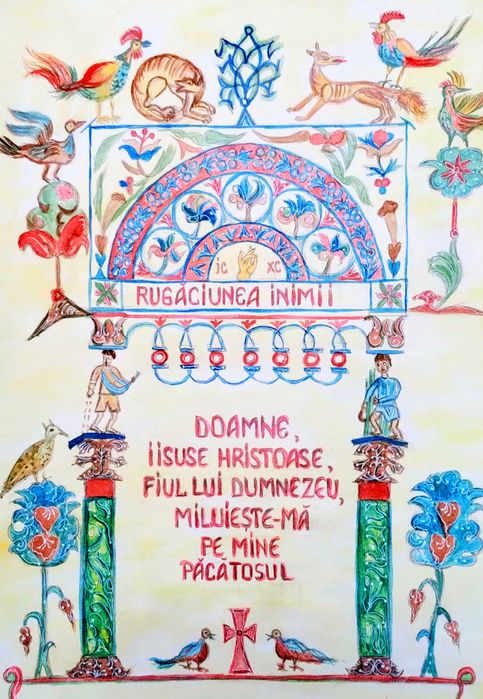 IC XC
RUGĂCIUNEA INIMII
DOAMNE,
IISUSE HRISTOASE,
FIUL LUI DUMNEZEU,
MILUIEȘTE-MĂ
PE MINE
PĂCĂTOSUL